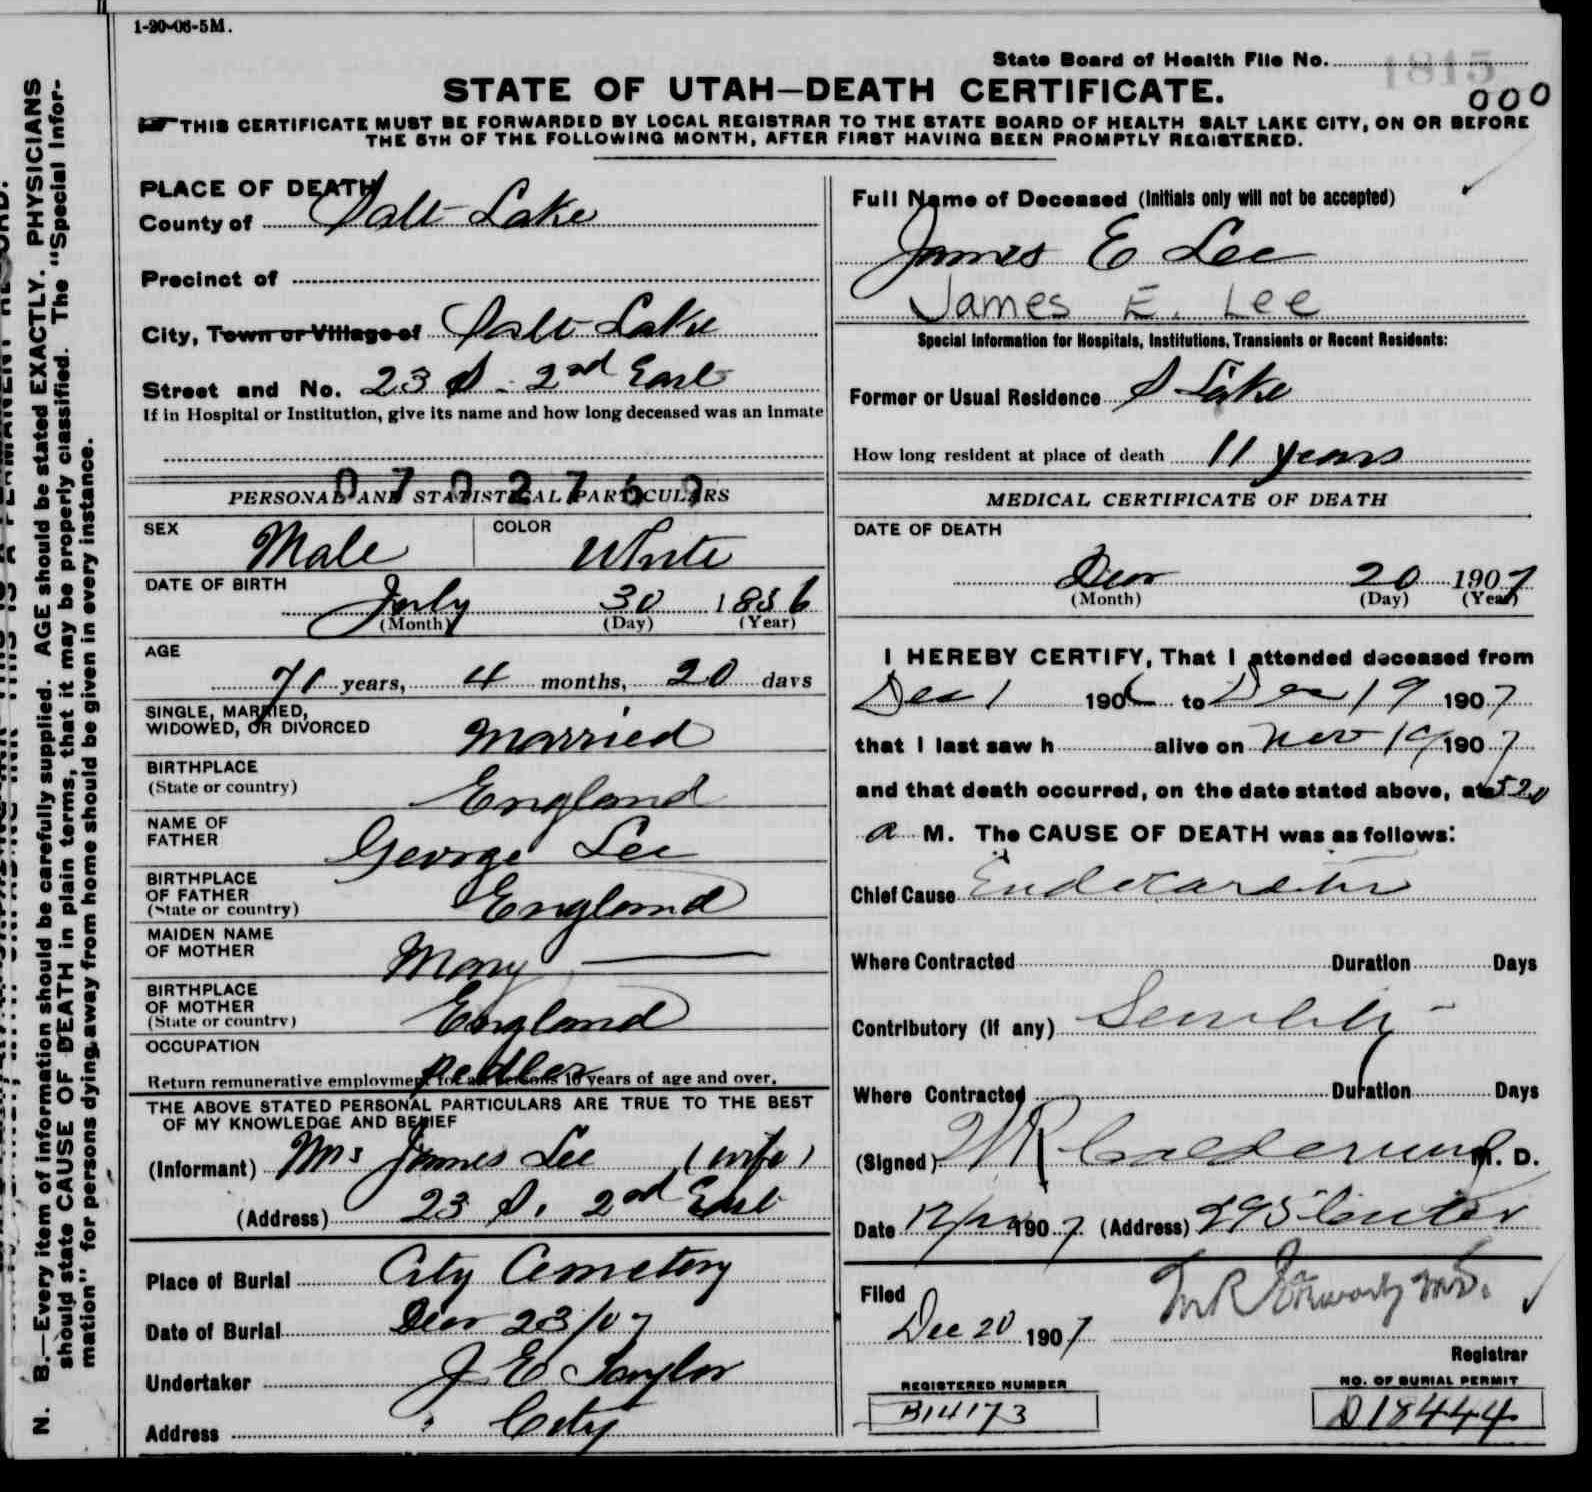 1-20-06-5M.
State Board of Health File No. 1815
000
STATE OF UTAH—DEATH CERTIFICATE.
THIS CERTIFICATE MUST BE FORWARDED BY LOCAL REGISTRAR TO THE STATE BOARD OF HEALTH SALT LAKE CITY, ON OR BEFORE
THE 5TH OF THE FOLLOWING MONTH, AFTER FIRST HAVING BEEN PROMPTLY REGISTERED.
PLACE OF DEATH
County of Salt Lake
Precinct of
City, Town or Village of Salt Lake
Street and No. 23 S. 2nd East
If in Hospital or Institution, give its name and how long deceased was an inmate
PERSONAL AND STATISTICAL PARTICULARS
SEX Male COLOR White
DATE OF BIRTH
July 30 1836
(Month) (Day) (Year)
AGE
71 years, 4 months, 20 days
SINGLE, MARRIED,
WIDOWED, OR DIVORCED Married
BIRTHPLACE
(State or country) England
NAME OF
FATHER George Lee
BIRTHPLACE
OF FATHER
(State or country) England
MAIDEN NAME
OF MOTHER Mary —
BIRTHPLACE
OF MOTHER
(State or country) England
OCCUPATION
pedler
Return remunerative employment for all persons 10 years of age and over.
THE ABOVE STATED PERSONAL PARTICULARS ARE TRUE TO THE BEST
OF MY KNOWLEDGE AND BELIEF
(Informant) Mrs James Lee (wife)
(Address) 23 S. 2nd East
Place of Burial City Cemetery
Date of Burial Decr 23/07
Undertaker J E Taylor
Address City
Full Name of Deceased (Initials only will not be accepted)
James E Lee
James E. Lee
Special Information for Hospitals, Institutions, Transients or Recent Residents:
Former or Usual Residence S Lake
How long resident at place of death 11 years
MEDICAL CERTIFICATE OF DEATH
DATE OF DEATH
Decr 20 1907
(Month) (Day) (Year)
I HEREBY CERTIFY, That I attended deceased from
Dec 1 1906 to Dec 19 1907
that I last saw h alive on Nov 19 1907
and that death occurred, on the date stated above, at 520
a M. The CAUSE OF DEATH was as follows:
Chief Cause Endocarditis
Where Contracted Duration Days
Contributory (if any) Senility
Where Contracted Duration Days
(Signed) M. D.
Date 1907 (Address) Center
Filed
Dec 20 1907
Registrar
REGISTERED NUMBER
B14173
NO. OF BURIAL PERMIT
D18444
N. B.—Every item of information should be carefully supplied. AGE should be stated EXACTLY. PHYSICIANS
should state CAUSE OF DEATH in plain terms, that it may be properly classified. The "Special Infor-
mation" for persons dying away from home should be given in every instance.